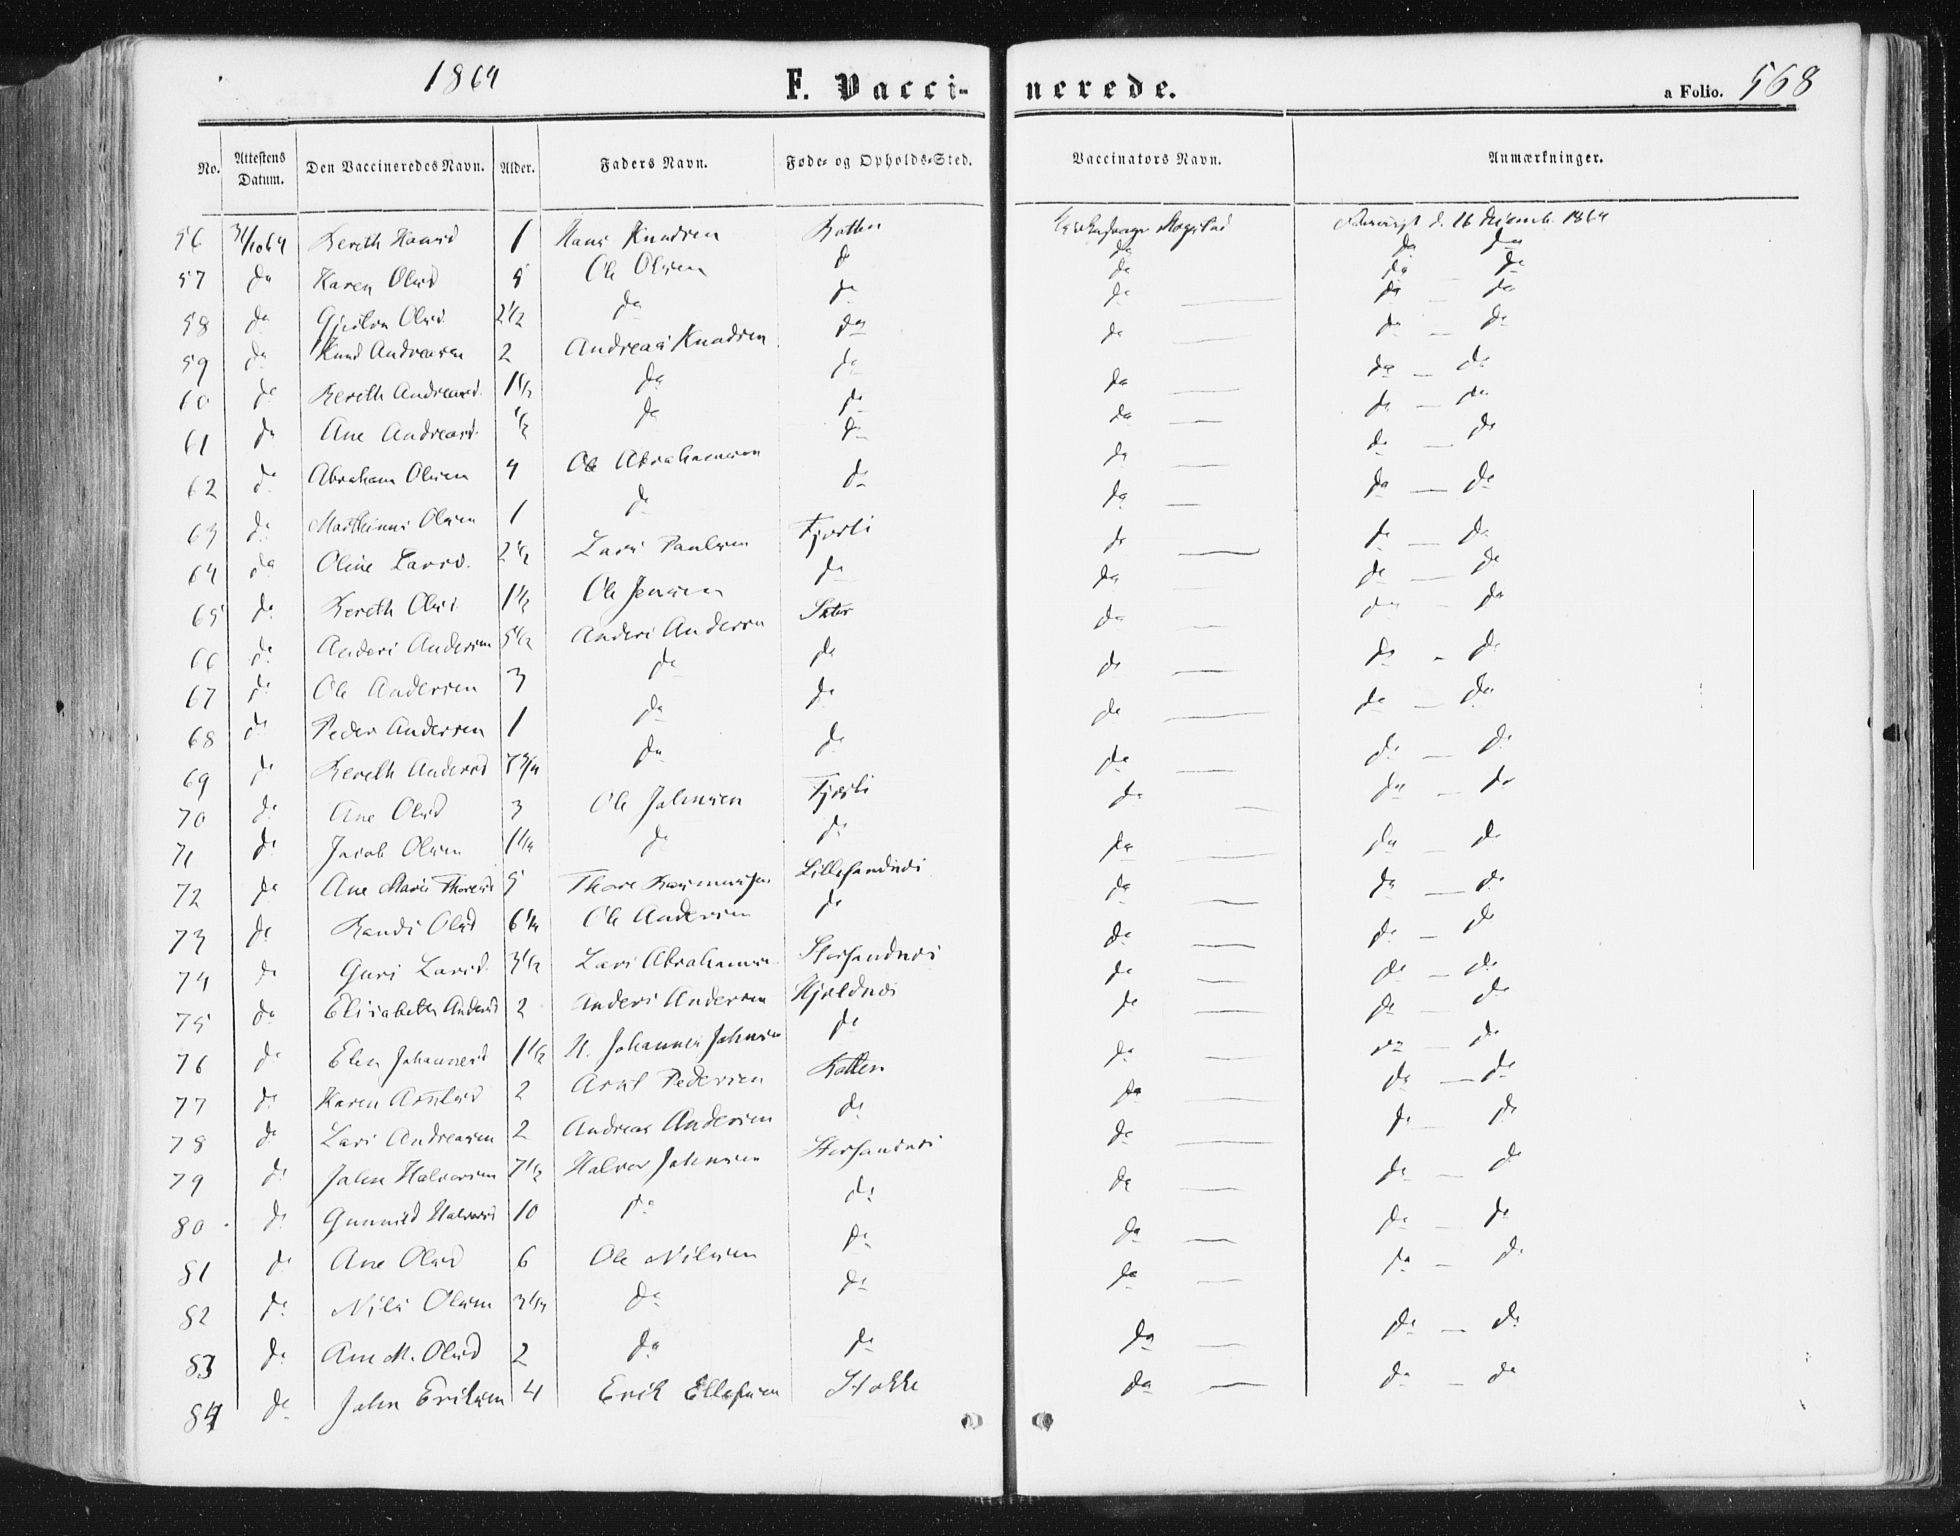 1864 F. Vaccinerede. a Folio. 568
No. Attestens Datum. Den Vaccineredes Navn. Alder. Faders Navn. Føde- og Opholds-Sted. Vaccinators Navn. Anmærkninger.
56 31/10 64 Bereth Hansd 1 Hans Knudsen d. 16 Decemb. 1864
57 do Karen Olsd 5 Ole Olsen do do do do
58 do Olsd 2 1/2 do do do do do
59 do Knud Andreasen 2 Andreas Knudsen do do do do
60 do Bereth Andreasd. 1 1/2 do do do do do
61 do Ane Andreasd. 1/2 do do do do do
62 do Abraham Olsen 4 Ole Abrahamsen do do do do
63 do Olsen 1 do do do do do
64 do Oline Larsd. 2 1/2 Lars Paulsen Fjærli do do do
65 do Bereth Olsd. 1 1/2 Ole Jensen do do do do
66 do Anders Andersen 5 1/2 Anders Andersen do do do
67 do Ole Andersen 3 do do do do do
68 do Peder Andersen 1 do do do do do
69 do Bereth Andersd do do do do do
70 do Ane Olsd 3 Ole Johnsen Fjærli do do do
71 do Jacob Olsen 1 1/4 do do do do do
72 do Ane Marie Thoresd 5 Thore Rasmussen Lillesandnes do do do
73 do Randi Olsd 6 1/4 Ole Andersen do do do do
74 do Guri Larsd. 3 1/2 Lars Abrahamsen Storsandnes do do do
75 do Elisabeth Andersd 2 Anders Andersen do do do
76 do Elen Johannesd 1 1/2 H. Johannes Johnsen do do do do
77 do Karen Arntsd 2 Arnt Pedersen do do do
78 do Lars Andreasen 2 Andreas Andersen do do do do
79 do John Halvorsen 7 1/2 Halvor Johnsen Storsandnes do do do
80 do Gunnild Halvorsd 10 do do do do do
81 do Ane Olsd 6 Ole Nilsen do do do do
82 do Nils Olsen 3 1/4 do do do do do
83 do Ane M. Olsd 2 do do do do do
84 do John Eriksen 4 Erik Ellefsen Stokke do do do